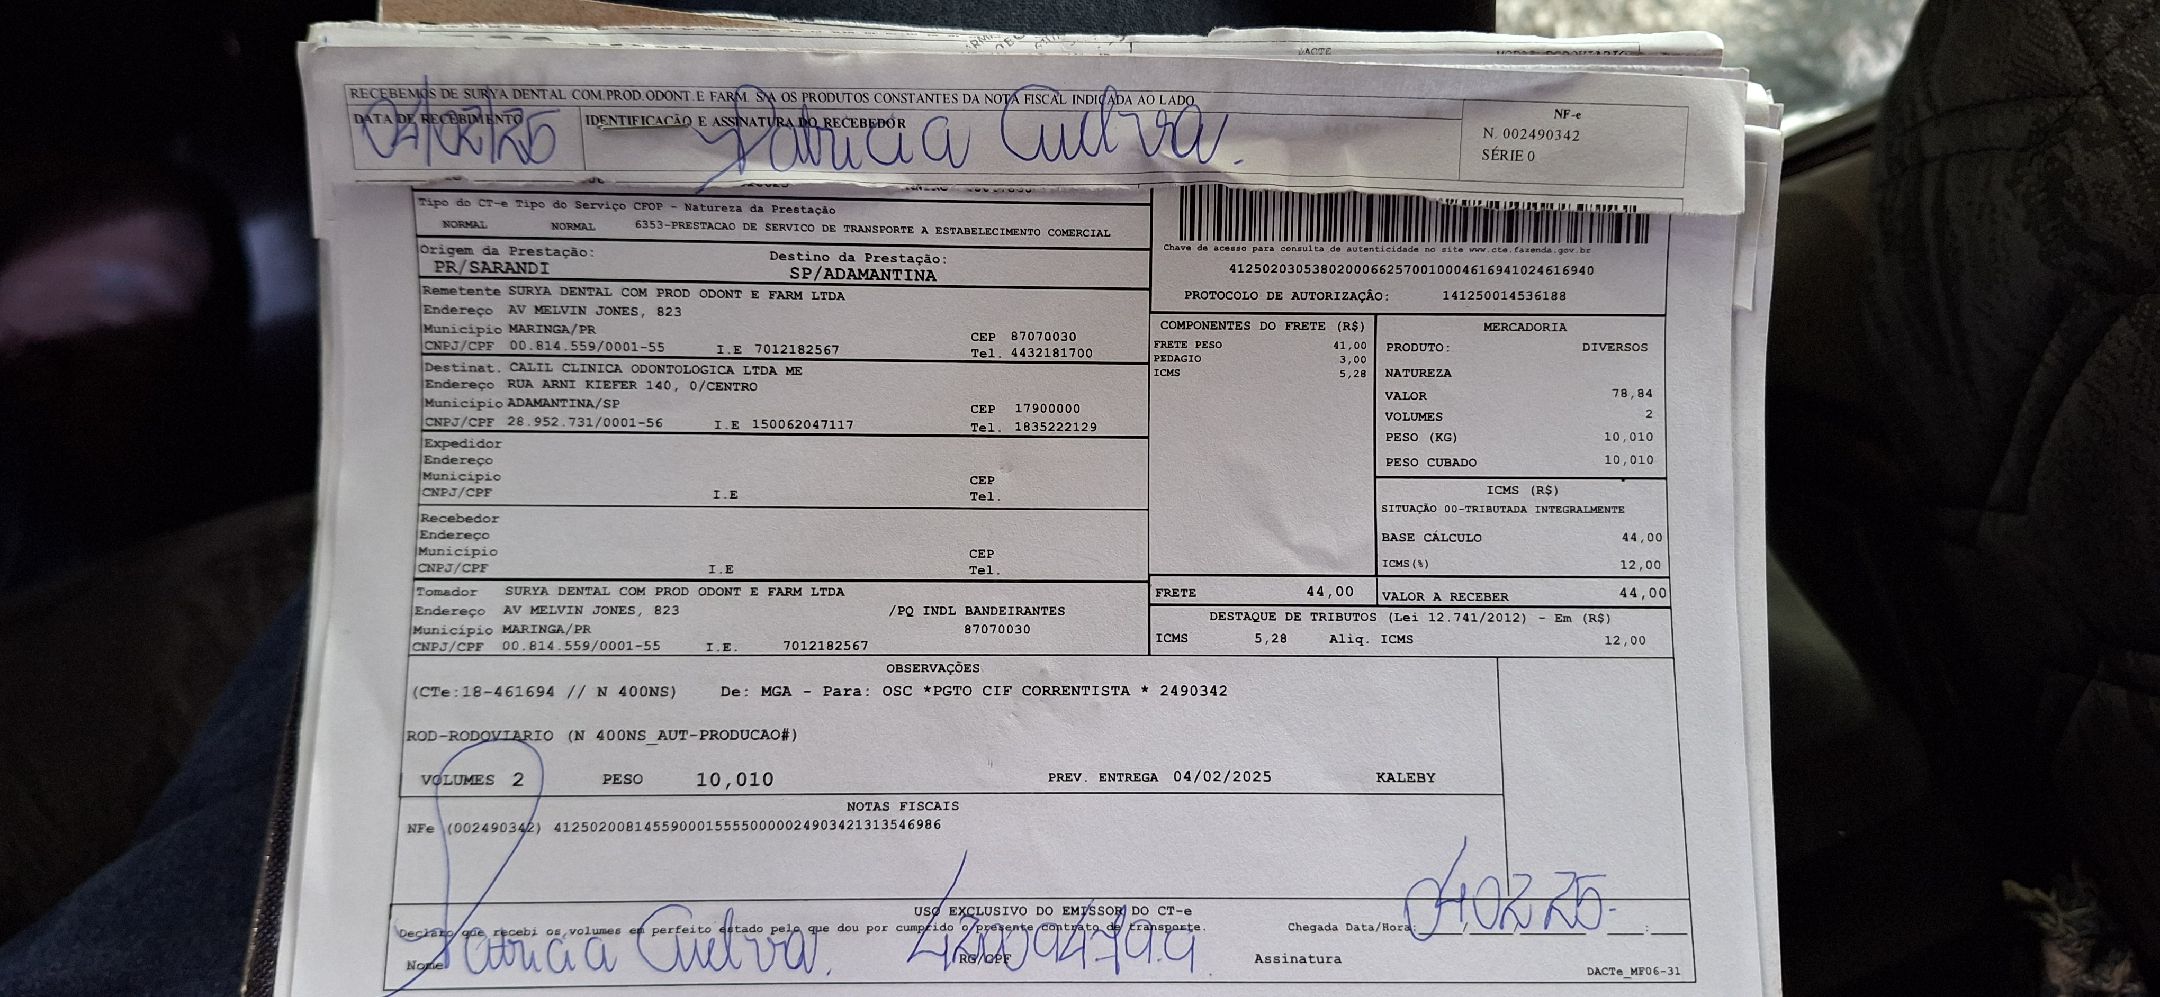 DACTE
RECEBEMOS DE SURYA DENTAL COM.PROD.ODONT.E FARM. S/A OS PRODUTOS CONSTANTES DA NOTA FISCAL INDICADA AO LADO
DATA DE RECEBIMENTO IDENTIFICAÇÃO E ASSINATURA DO RECEBEDOR
04/02/25 Patricia
NF-e
N. 002490342
SÉRIE 0
Tipo do CT-e Tipo do Serviço CFOP - Natureza da Prestação
NORMAL NORMAL 6353-PRESTACAO DE SERVICO DE TRANSPORTE A ESTABELECIMENTO COMERCIAL
Origem da Prestação: Destino da Prestação:
PR/SARANDI SP/ADAMANTINA
Remetente SURYA DENTAL COM PROD ODONT E FARM LTDA
Endereço AV MELVIN JONES, 823
Município MARINGA/PR CEP 87070030
CNPJ/CPF 00.814.559/0001-55 I.E 7012182567 Tel. 4432181700
Destinat. CALIL CLINICA ODONTOLOGICA LTDA ME
Endereço RUA ARNI KIEFER 140, 0/CENTRO
Município ADAMANTINA/SP CEP 17900000
CNPJ/CPF 28.952.731/0001-56 I.E 150062047117 Tel. 1835222129
Expedidor
Endereço
Município CEP
CNPJ/CPF I.E Tel.
Recebedor
Endereço
Município CEP
CNPJ/CPF I.E Tel.
Tomador SURYA DENTAL COM PROD ODONT E FARM LTDA
Endereço AV MELVIN JONES, 823 /PQ INDL BANDEIRANTES
Município MARINGA/PR 87070030
CNPJ/CPF 00.814.559/0001-55 I.E. 7012182567
Chave de acesso para consulta de autenticidade no site www.cte.fazenda.gov.br
41250203053802000662570010004616941024616940
PROTOCOLO DE AUTORIZAÇÃO: 141250014536188
COMPONENTES DO FRETE (R$)
FRETE PESO 41,00
PEDAGIO 3,00
ICMS 5,28
MERCADORIA
PRODUTO: DIVERSOS
NATUREZA
VALOR 78,84
VOLUMES 2
PESO (KG) 10,010
PESO CUBADO 10,010
ICMS (R$)
SITUAÇÃO 00-TRIBUTADA INTEGRALMENTE
BASE CÁLCULO 44,00
ICMS(%) 12,00
FRETE 44,00 VALOR A RECEBER 44,00
DESTAQUE DE TRIBUTOS (Lei 12.741/2012) - Em (R$)
ICMS 5,28 Aliq. ICMS 12,00
OBSERVAÇÕES
(CTe:18-461694 // N 400NS) De: MGA - Para: OSC *PGTO CIF CORRENTISTA * 2490342
ROD-RODOVIARIO (N 400NS_AUT-PRODUCAO#)
VOLUMES 2 PESO 10,010 PREV. ENTREGA 04/02/2025 KALEBY
NOTAS FISCAIS
NFe (002490342) 41250200814559000155550000024903421313546986
USO EXCLUSIVO DO EMISSOR DO CT-e
Declaro que recebi os volumes em perfeito estado pelo que dou por cumprido o presente contrato de transporte. Chegada Data/Hora: 04.02.25
Nome Patricia RG/CPF Assinatura
DACTe_MF06-31